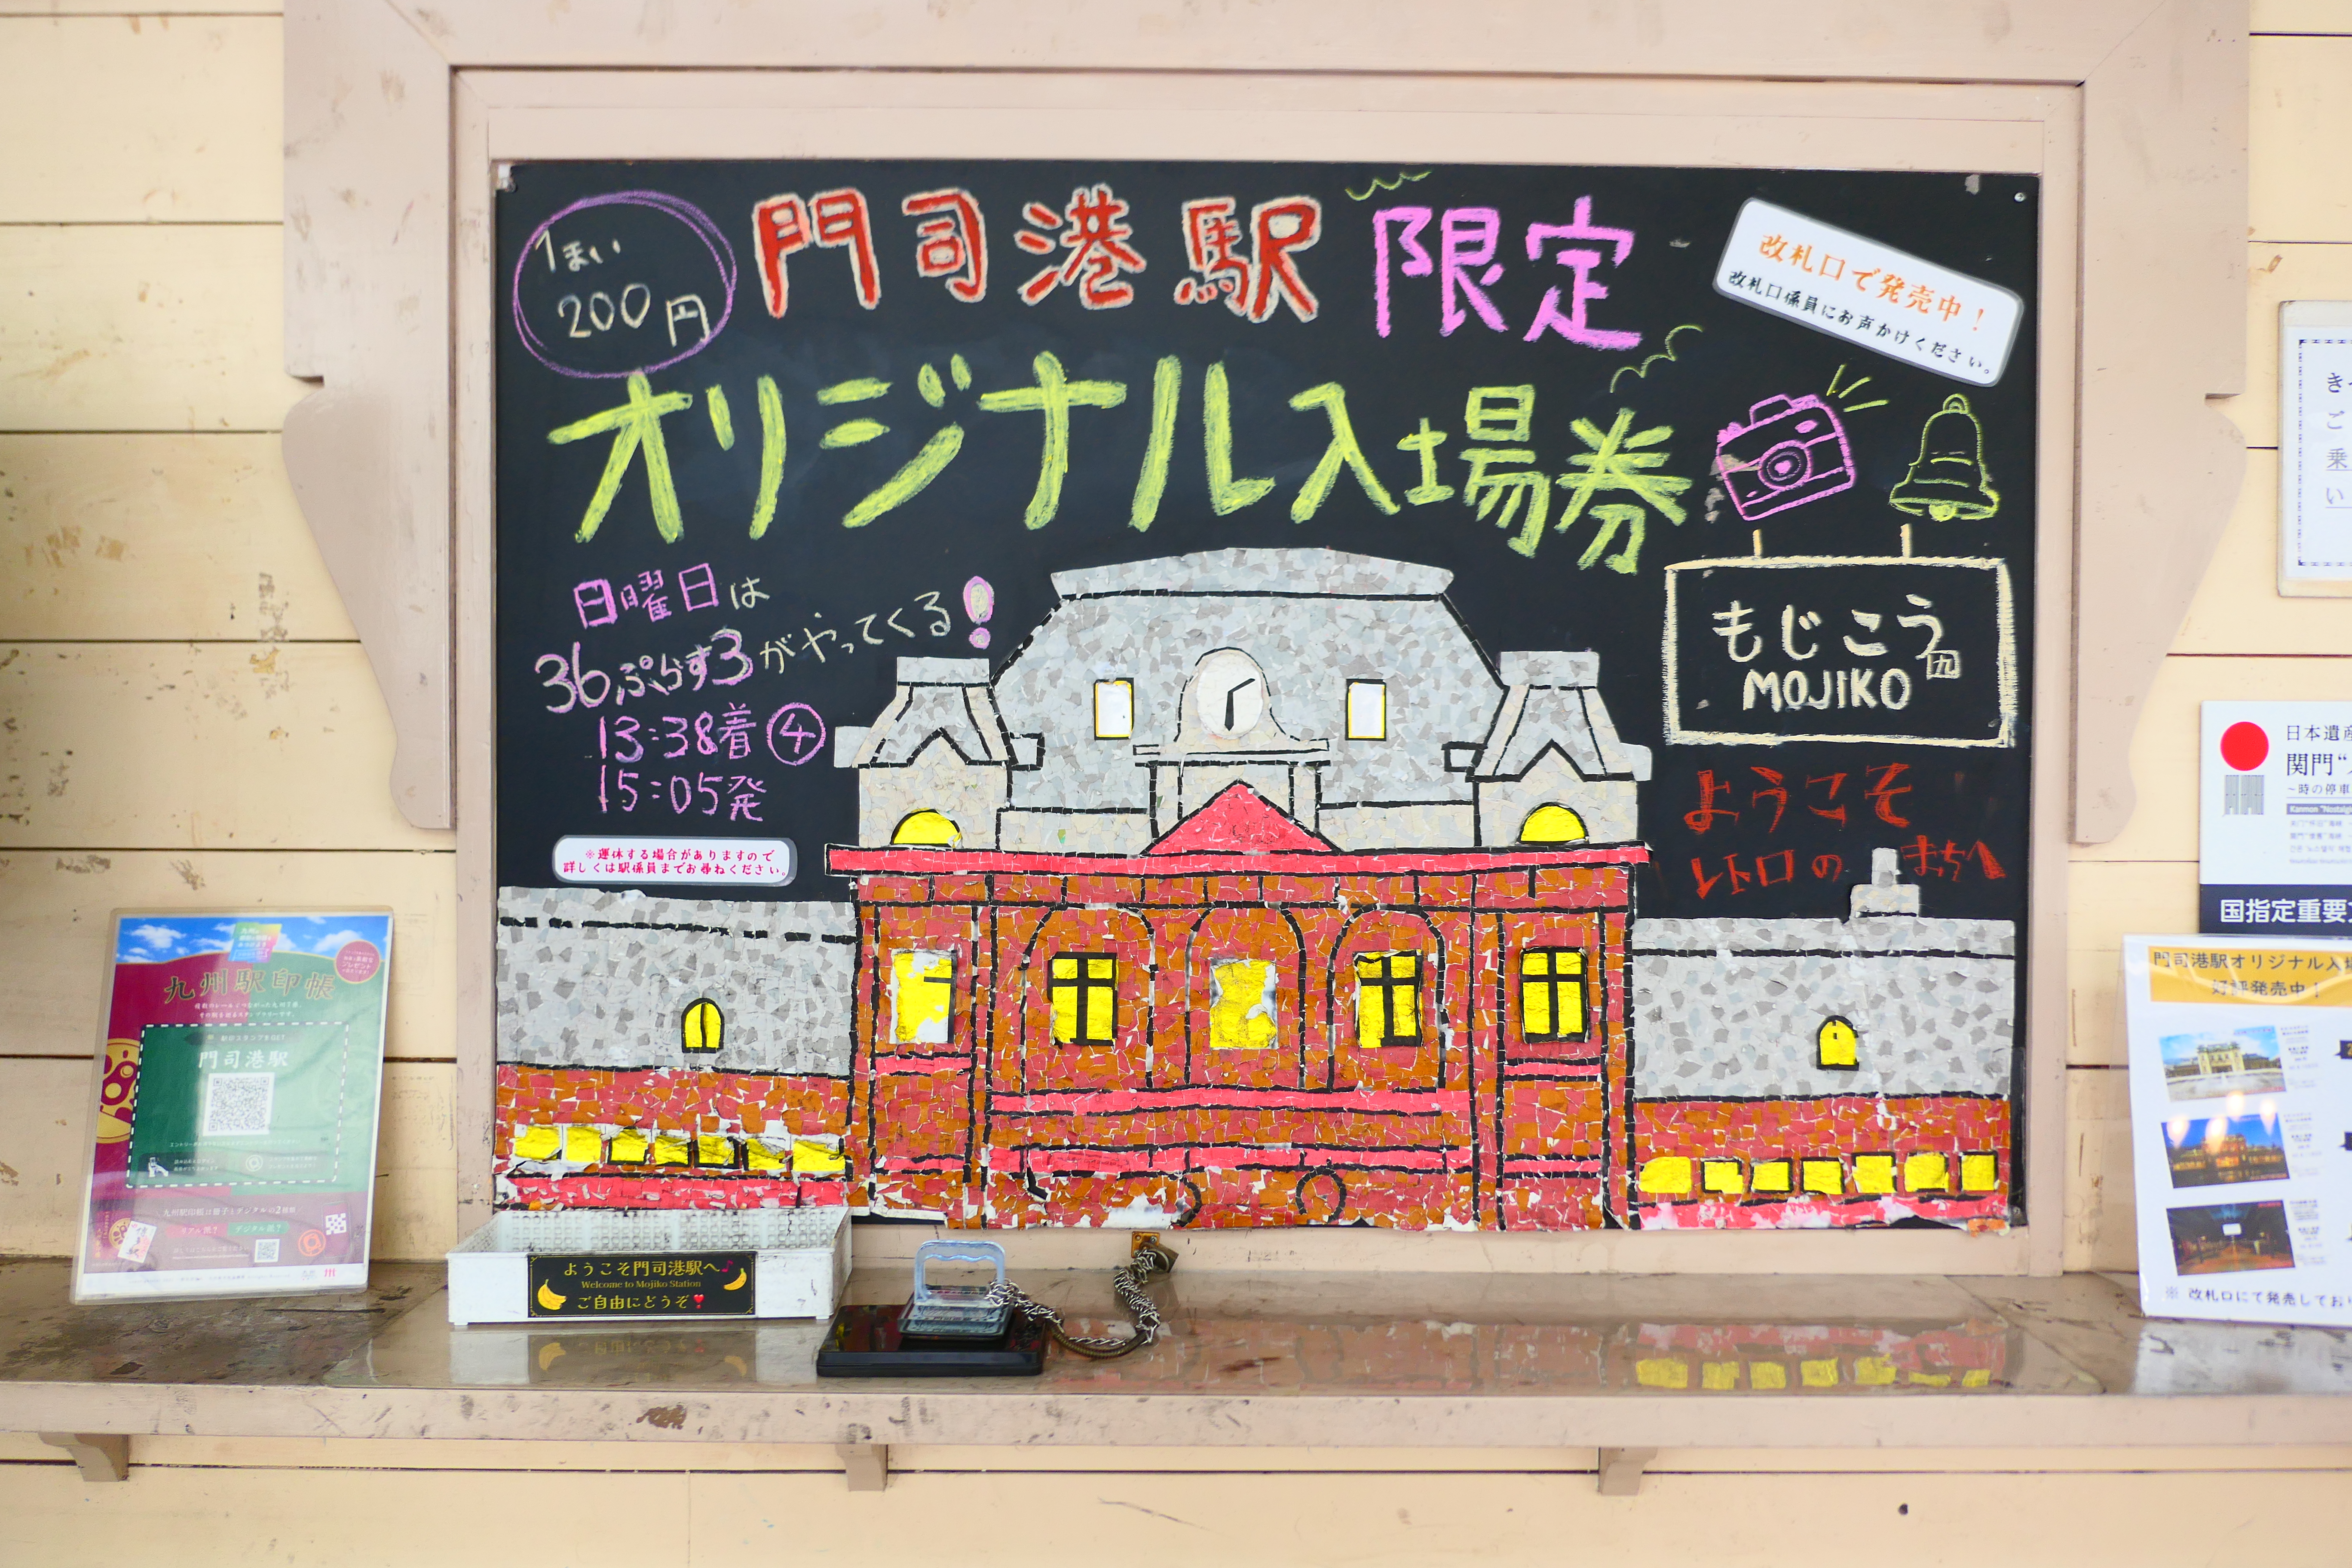 1まい
200円
門司港駅限定
オリジナル入場券
改札口で発売中!
改札口係員にお声かけください。
日曜日は
36ぷらす3がやってくる!
13:38着④
15:05発
※運休する場合がありますので
詳しくは駅係員までお尋ねください。
もじこう九
MOJIKO
ようこそ
レトロのまちへ
九州駅印帳
門司港駅
ようこそ門司港駅へ♪
Welcome to Mojiko Station
ご自由にどうぞ
ご
乗
い
日本遺産
関門“
～時の停車
国指定重要
門司港駅オリジナル入場
好評発売中!
※ 改札口にて発売してお